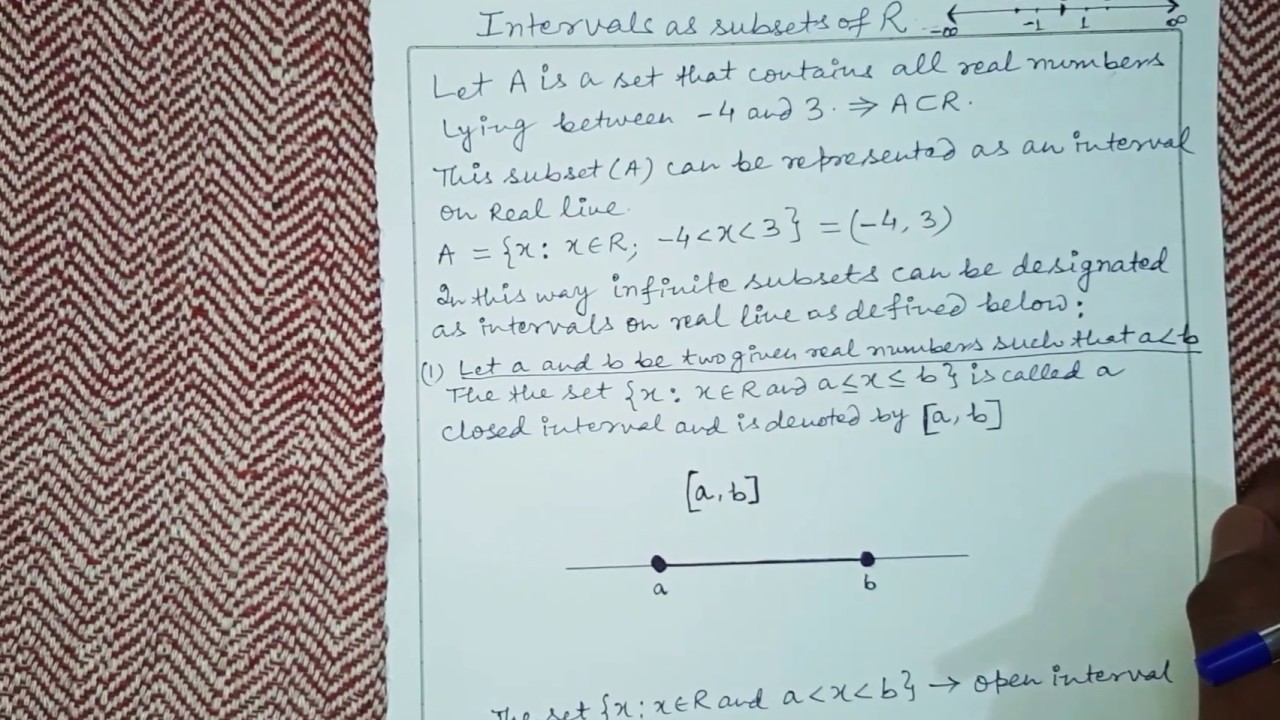 Intervals as subsets of R -∞ -1 1 ∞
Let A is a set that contains all real numbers
Lying between -4 and 3. ⇒ A⊂R.
This subset (A) can be represented as an interval
on Real line.
A = {x: x∈R; -4<x<3} = (-4, 3)
In this way infinite subsets can be designated
as intervals on real line as defined below:
(1) Let a and b be two given real numbers such that a<b
The the set {x: x∈R and a≤x≤b} is called a
closed interval and is denoted by [a,b]
[a,b]
a b
The set {x: x∈R and a<x<b} → open interval